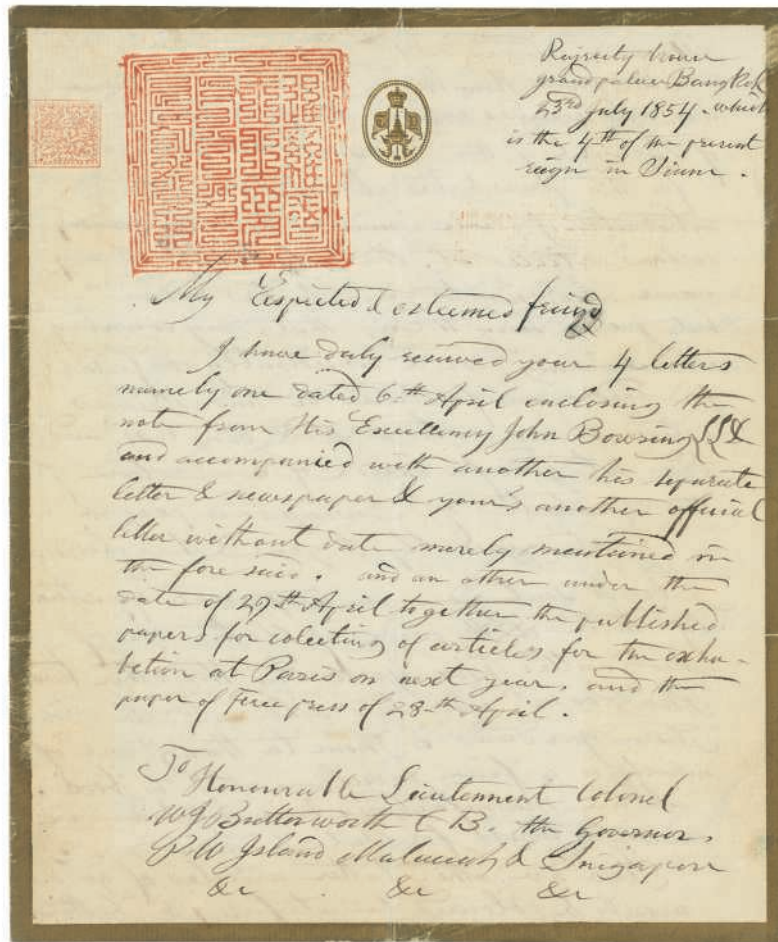 Rajesty house
grandpalace Bangkok
23rd July 1854 - which
is the 4th of the present
reign in Siam.
My Respected & esteemed friend
I have duly received your 4 letters
namely one dated 6th April enclosing the
note from His Excellency John Bowring
and accompanied with another his separate
letter & newspaper & your's another official
letter without date merely mentioned in
the fore said. and an other under the
date of 27th April together the published
papers for colecting of articles for the exhi-
bition at Paris on next year, and the
paper of Free press of 28th April.
To
Honourable Lieutennent Colonel
W J Butterworth C B. the Governor,
P W Island Malacca & Singapore
&c &c &c